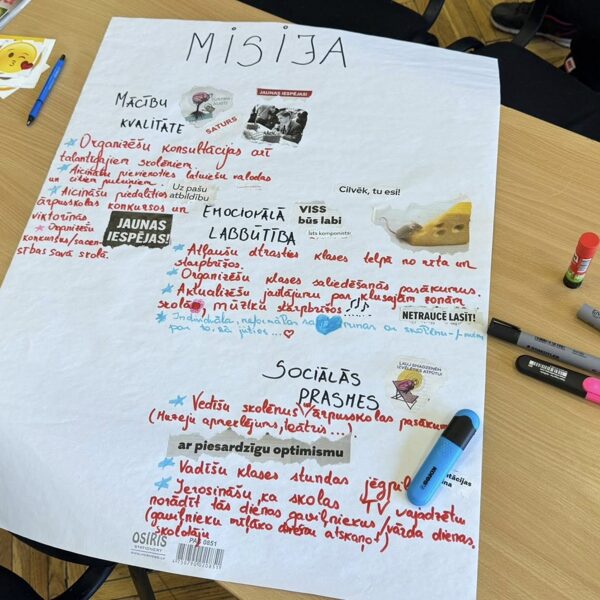 MISIJA
MĀCĪBU
KVALITĀTE
SATURS
JAUNAS IESPĒJAS!
* Organizēšu konsultācijas arī
talantīgajiem skolēniem.
* Aicināšu pievienoties latviešu valodas
un citiem pulciņiem.
* Aicināšu piedalīties
ārpusskolas konkursos un
viktorīnās
* Organizēšu
konkursus/sacen-
sības savā skolā.
Uz pašu
atbildību
JAUNAS
IESPĒJAS!
Cilvēk, tu esi!
EMOCIONĀLĀ
LABBŪTĪBA
VISS
būs labi
* Atļaušu atrasties klases telpā no rīta un
starpbrīžos.
* Organizēšu klases saliedēšanās pasākumus.
* Aktualizēšu jautājumu par klusajām zonām
skolā, mūziku starpbrīžos
NETRAUCĒ LASĪT!
* Individuāla, neformālas sa runas ar skolēnu
par to, kā jūties...
SOCIĀLĀS
PRASMES
ĻAUJ SMADZENĒM
IZVĒLĒTIES ATPŪTU!
* Vedīšu skolēnus ārpusskolas pasākum
(Muzeju apmeklējums, teātris...).
ar piesardzīgu optimismu
* Vadīšu klases stundas jēgpil
* Ierosināšu, ka skolas TV vajadzētu
norādīt tās dienas gaviļniekus/vārda dienas.
(gaviļnieku mīļāko dziesmu atskaņot)
skolotāju
OSIRIS
STATIONERY
PAP 0851
KORES